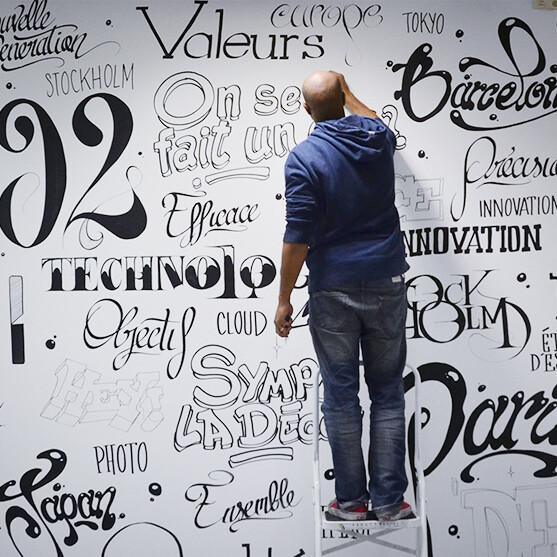 Nouvelle
Génération
Valeurs
europe
TOKYO
STOCKHOLM
Barcelon
On se
fait un
92
Précision
INNOVATION
Efficace
INNOVATION
TECHNOLO
STOCKHOLM
Objectif
CLOUD
SYMP
LA DÉC
Paris
PHOTO
Japan
Ensemble